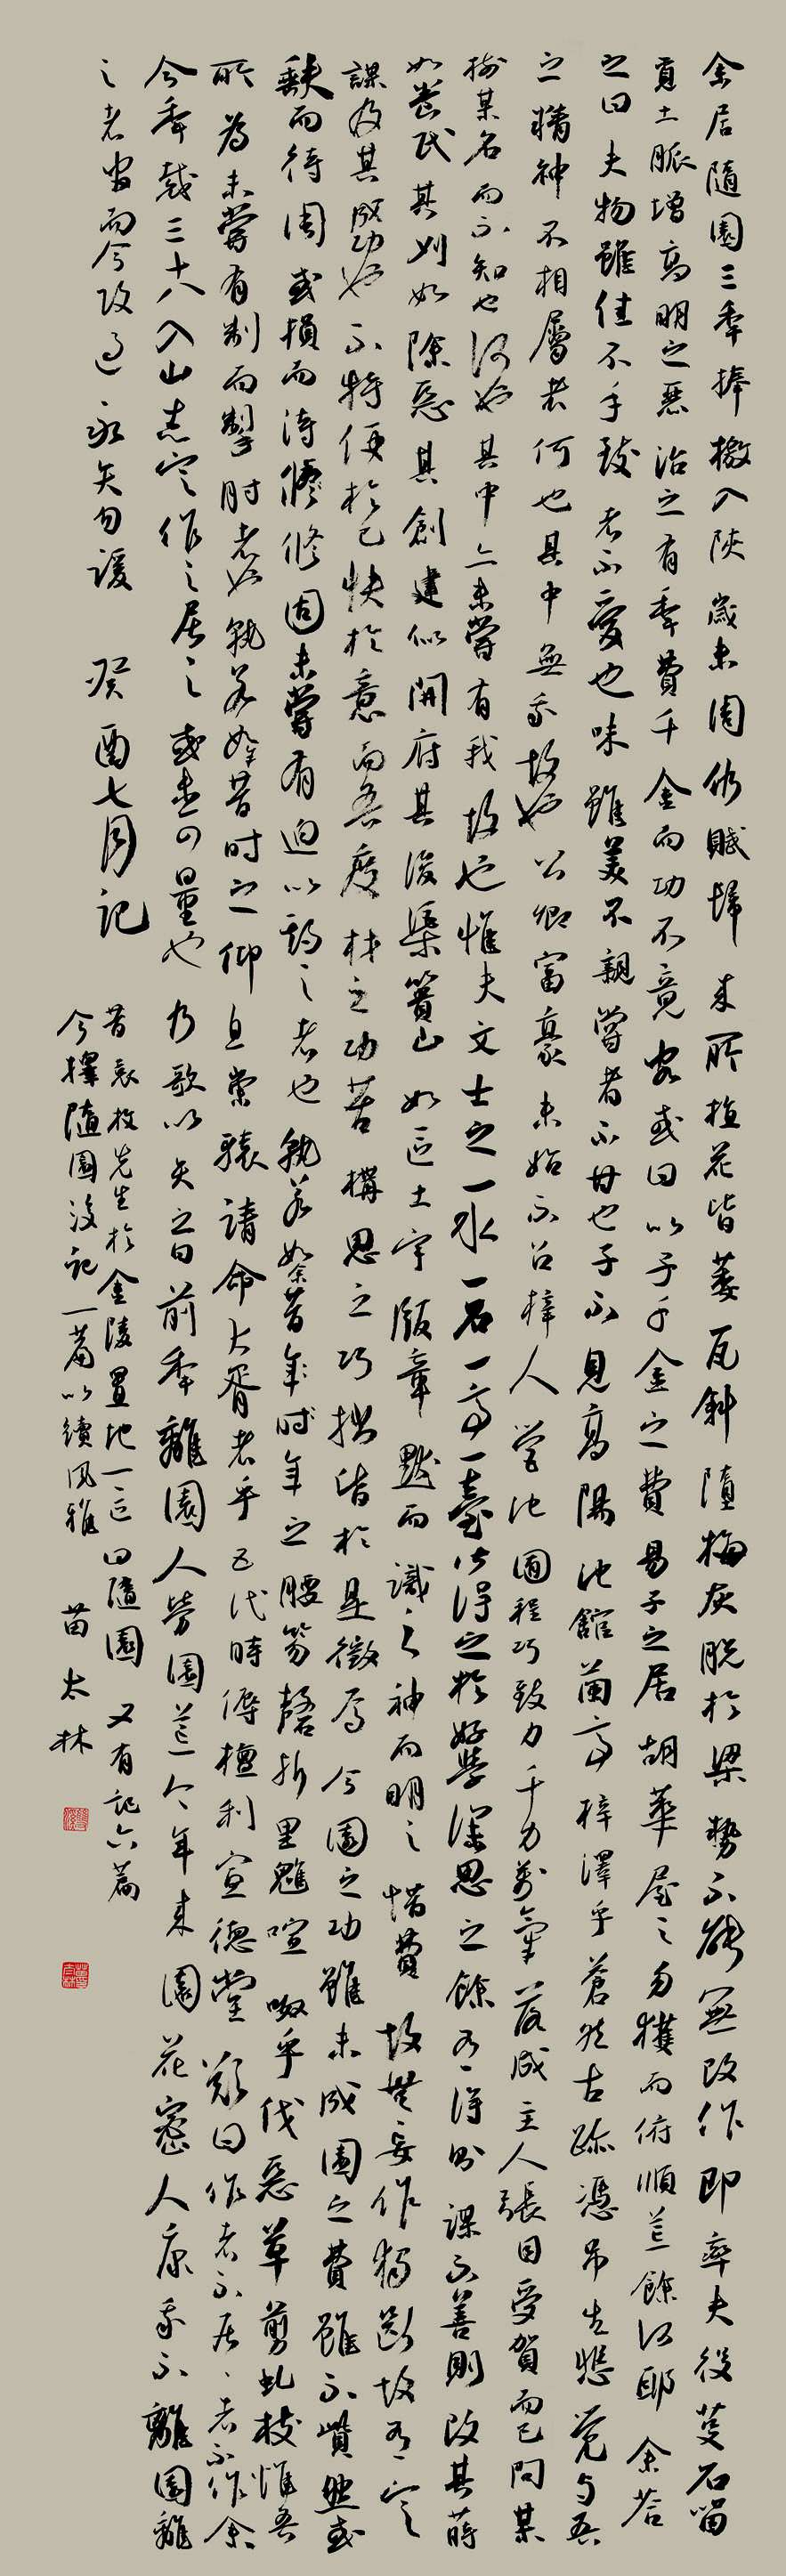 余居隨園三年捧檄入陝歲未周仍賦歸來所植花皆萎瓦斜墮梅灰脫於梁勢不能無改作即率夫役芟石留
覓土脈增高明之麗治之有年費千金而功不竟客或曰以子千金之費易子之居胡華屋之勿獲而俯順荒餘何耶余答
之曰夫物雖佳不手致者不愛也味雖美不親嘗者不甘也子不見高陽池館蘭亭梓澤乎蒼然古跡憑弔生悲覺與吾
之精神不相屬者何也其中無我故也公卿富豪未始不召梓人營池囿程巧致力千力萬氣落成主人張目受賀而已問某
樹某名而不知也何也其中亦未嘗有我故也惟夫文士之一水一石一亭一臺皆得之於好學深思之餘有得則謀不善則改其蒔
如養民其刈如除惡其創建似開府其浚渠簣山如區土宇版章默而識之神而明之惜費故無妄作獨斷故有定
謀及其成功也不特便於己快於意而吾度材之功苦構思之巧拙皆於是徵焉今園之功雖未成園之費雖不貲然或
缺而待周或損而待修固未嘗有迫以期之者也孰若余昔年時之腰笏磬折里魋喧呶乎伐惡草剪虬枝惟吾
所為未嘗有制而掣肘者也孰若余昔時之仰息崇轅請命大胥者乎五代時傅檀利宣德堂歎曰作者不居居者不作余
今年裁三十八入山志定作之居之或未可量也乃歌以矢之曰前年離園人勞園荒今年來園花密人康我不離園離
之者官而今改過永矢勿諼 癸酉七月記
昔袁枚先生於金陵置地一區曰隨園又有記六篇
今擇隨園後記一篇以續風雅 苗太林